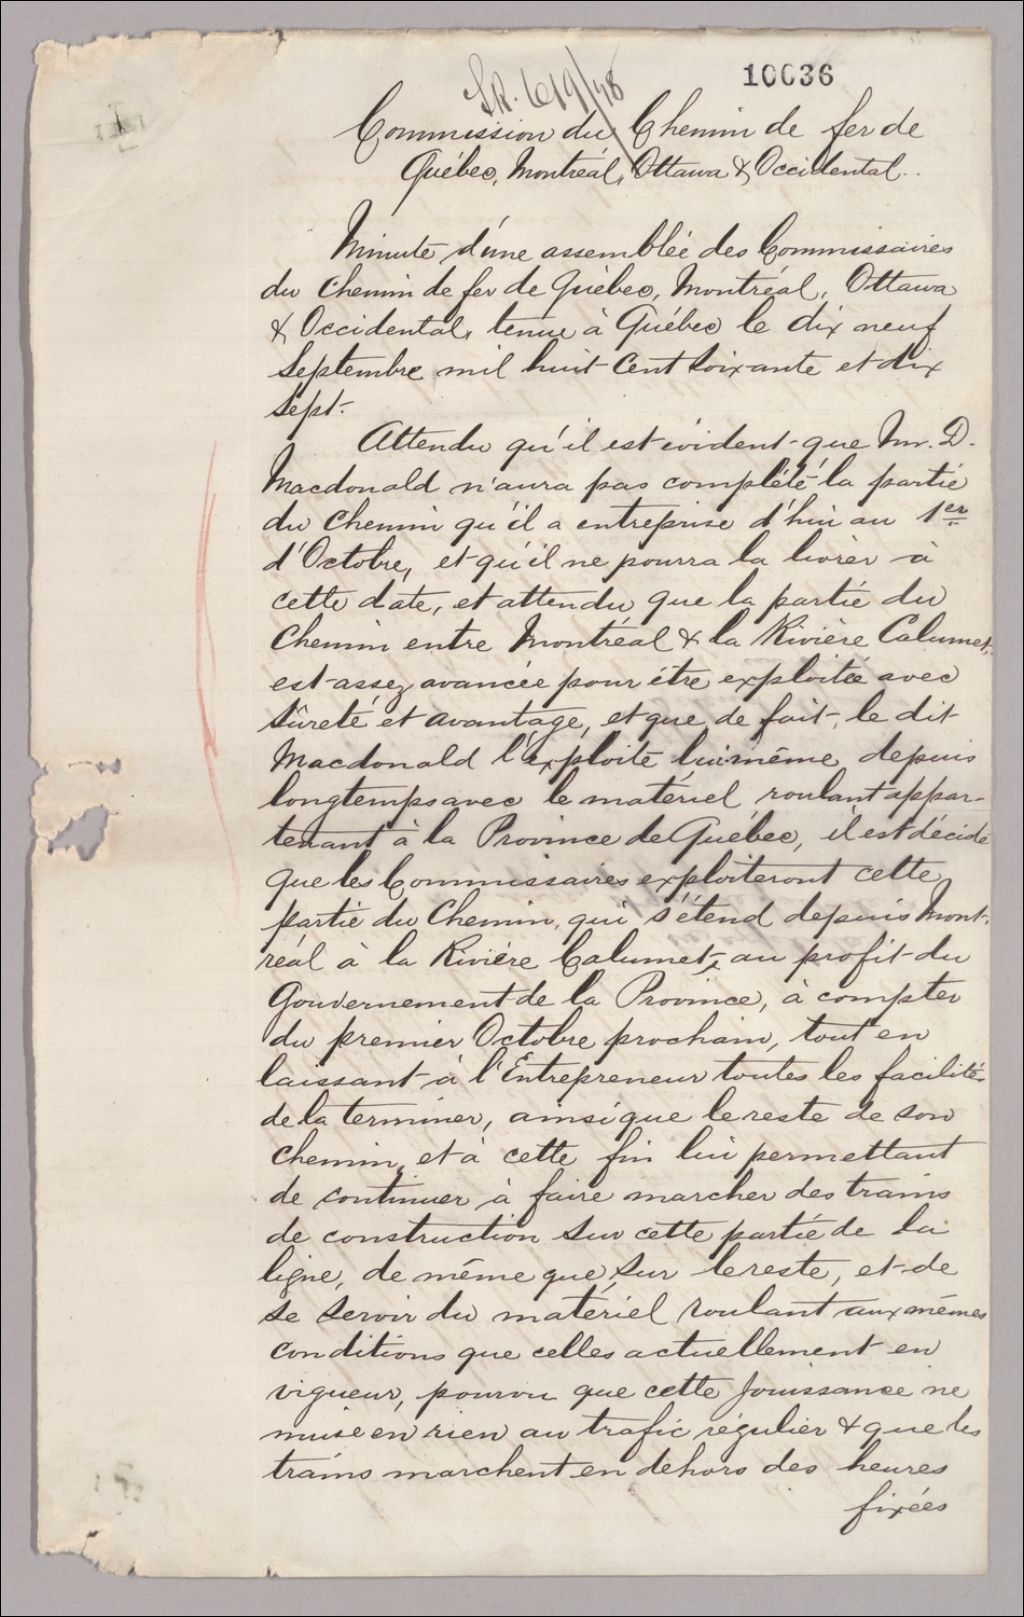 10036
Commission du Chemin de fer de
Québec, Montréal, Ottawa & Occidental.
Minute d'une assemblée des Commissaires
du Chemin de fer de Québec, Montréal, Ottawa
& Occidental, tenue à Québec le dix neuf
Septembre mil huit Cent soixante et dix
sept.
Attendu qu'il est évident que Mr. D.
Macdonald n'aura pas complété la partie
du Chemin qu'il a entreprise d'hui au 1er
d'Octobre, et qu'il ne pourra la livrer à
cette date, et attendu que la partie du
Chemin entre Montréal & la Rivière Calumet,
est assez avancée pour être exploitée avec
sûreté et avantage, et que de fait, le dit
Macdonald l'exploite lui même depuis
longtemps avec le matériel roulant appar-
tenant à la Province de Québec, il est décidé
que les Commissaires exploiteront cette
partie du Chemin, qui s'étend depuis Mont-
réal à la Rivière Calumet, au profit du
Gouvernement de la Province, à compter
du premier Octobre prochain, tout en
laissant à l'Entrepreneur toutes les facilités
de la terminer, ainsi que le reste de son
Chemin, et à cette fin lui permettant
de continuer à faire marcher des trains
de construction sur cette partie de la
ligne, de même que sur le reste, et de
se servir du matériel roulant aux mêmes
conditions que celles actuellement en
vigueur, pourvu que cette jouissance ne
nuise en rien au trafic régulier & que les
trains marchent en dehors des heures
fixées